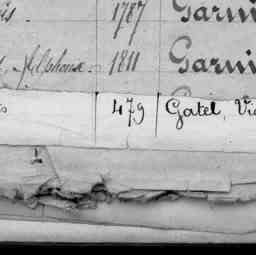 is. 1787 Garni
Alphonse. 1811 Garni
is 479 Gatel, Vi